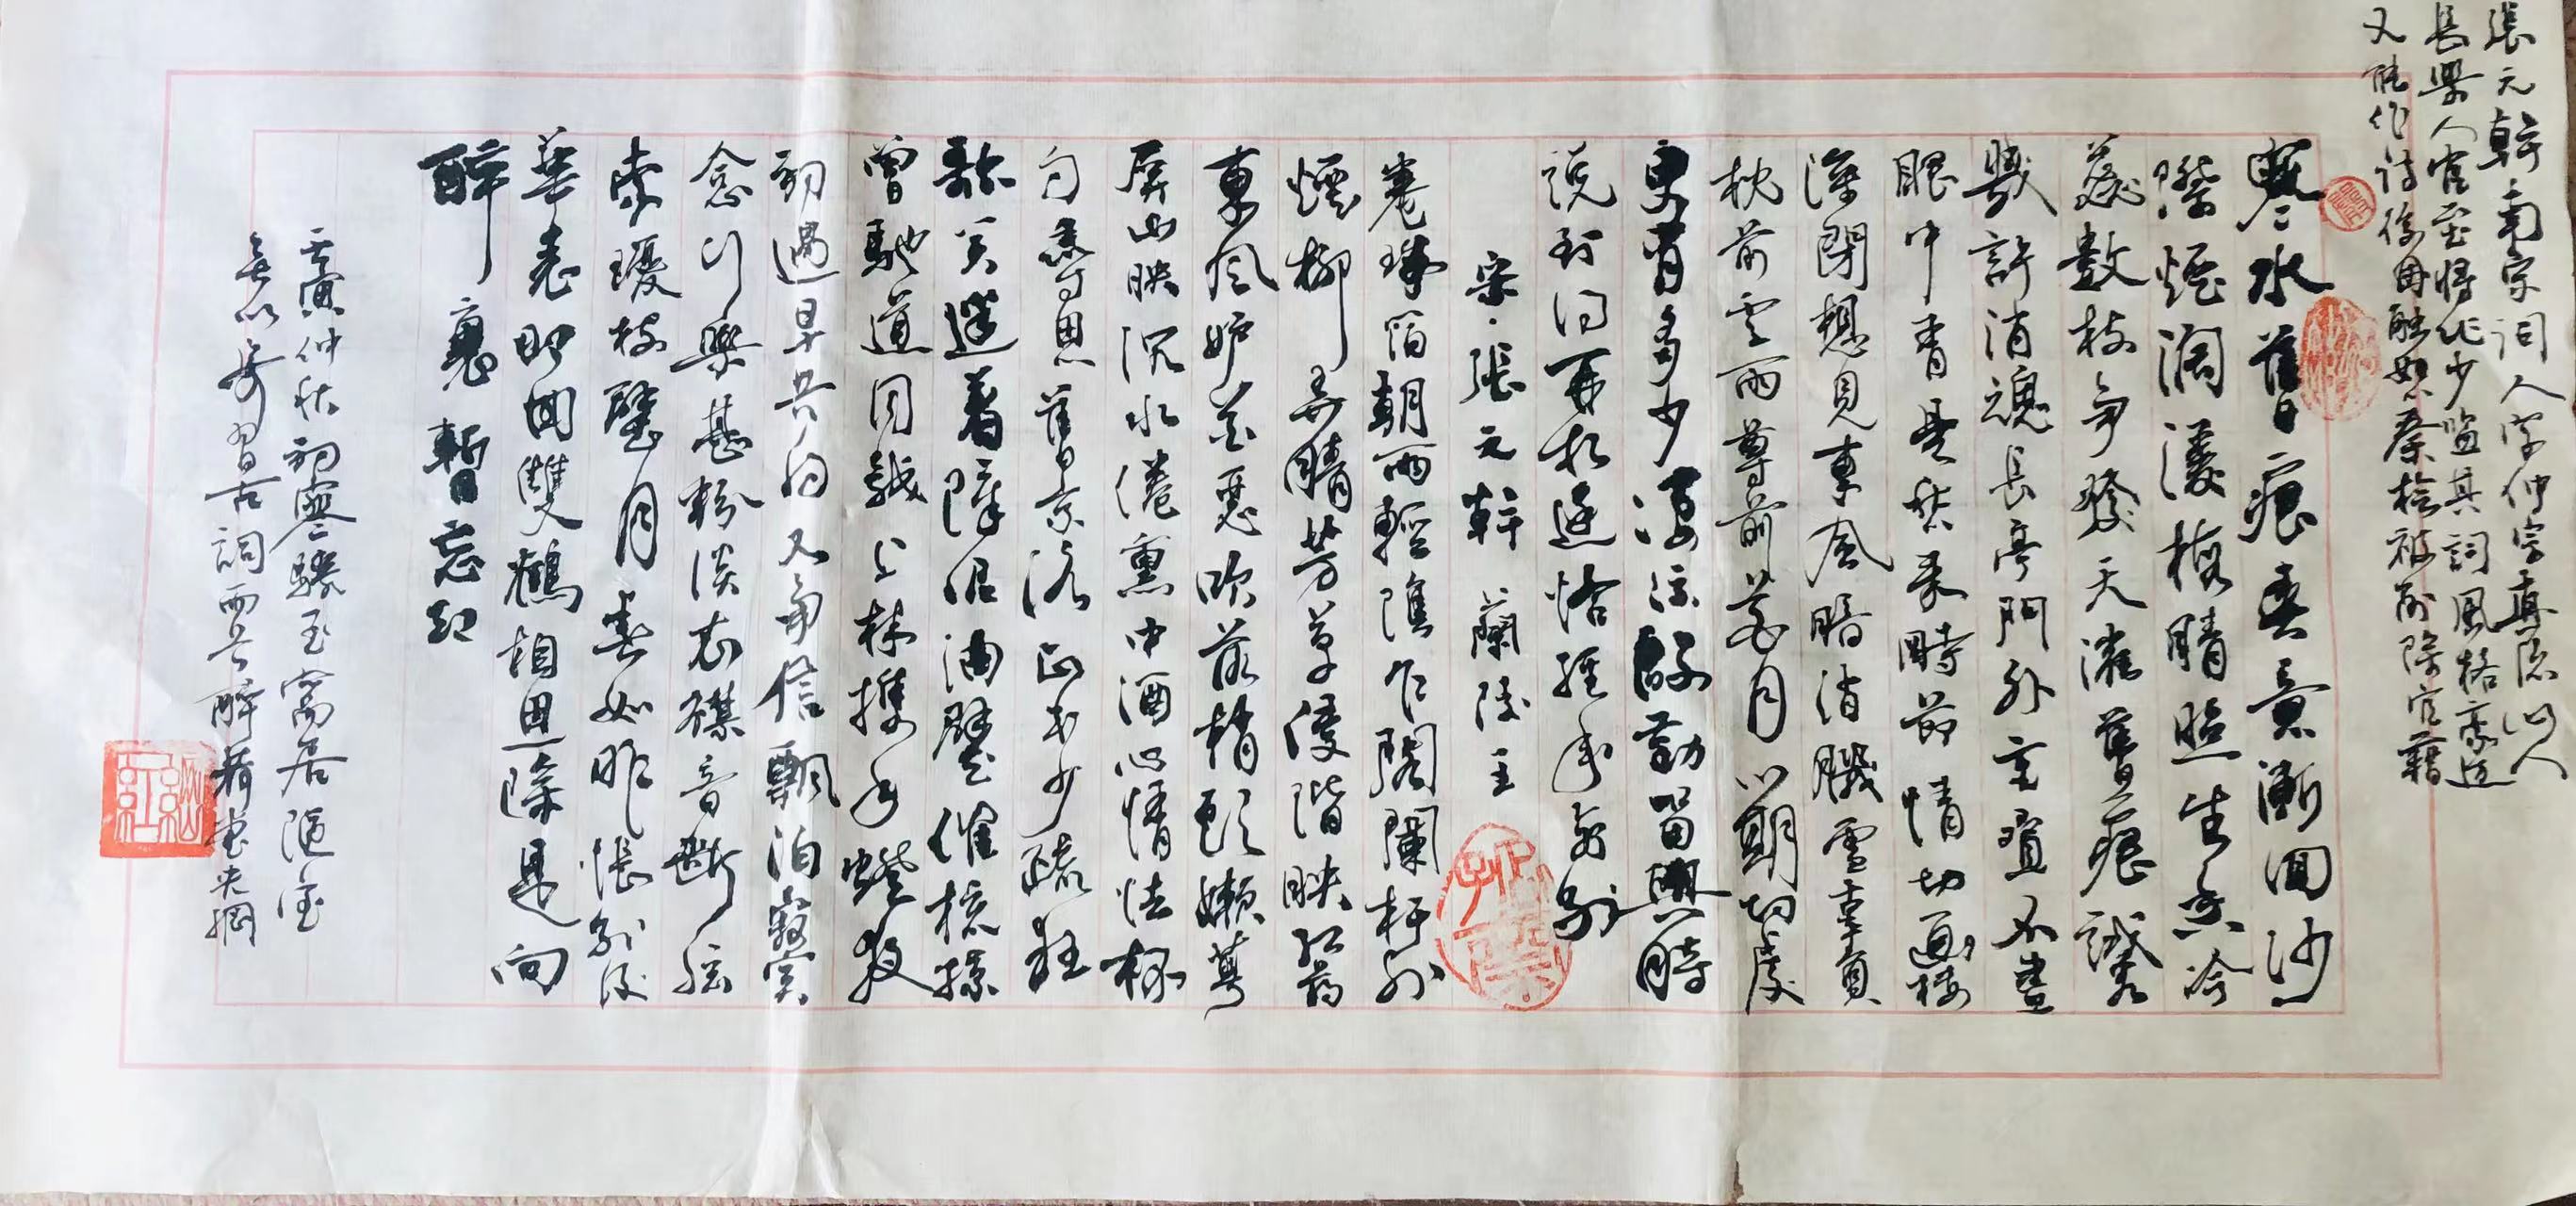 張元幹南宋詞人字仲宗真隱山人
長樂人官至將作少監其詞風格豪邁
又能作詩後因触怒秦檜被削除官籍
寒水舊痕春意漸回沙
際煙闊溪梅晴照生香冷
蕊數枝爭發天涯舊痕試看
幾許消魂長亭門外重疊不盡
眼中青是愁來時節情切畫樓
深閉想見東風暗消肌雪辜負
枕前雲雨尊前花月心期切處
更有多少淒涼殷勤留與時
說到得再相逢恰經年離別
宋·張元幹 蘭陵王
捲珠箔朝雨輕陰乍閣闌杆外
煙柳弄晴芳草侵階映紅葯
東風妒花惡吹落梢頭嫩萼
屏山映沉水倦熏中酒心情怯杯
勺尋思舊京洛正年少疏狂
歌笑迷著障泥油壁催梳掠
曾馳道同載上林攜手燈夜
初過早共約又爭信飄泊寂寞
念行樂甚粉淡衣襟音斷弦
索瓊枝璧月春如昨悵別後
華表那回雙鶴相思除是向
醉裏暫忘卻
壬寅仲秋初寒驟至寓居陋室
無以習古詞而